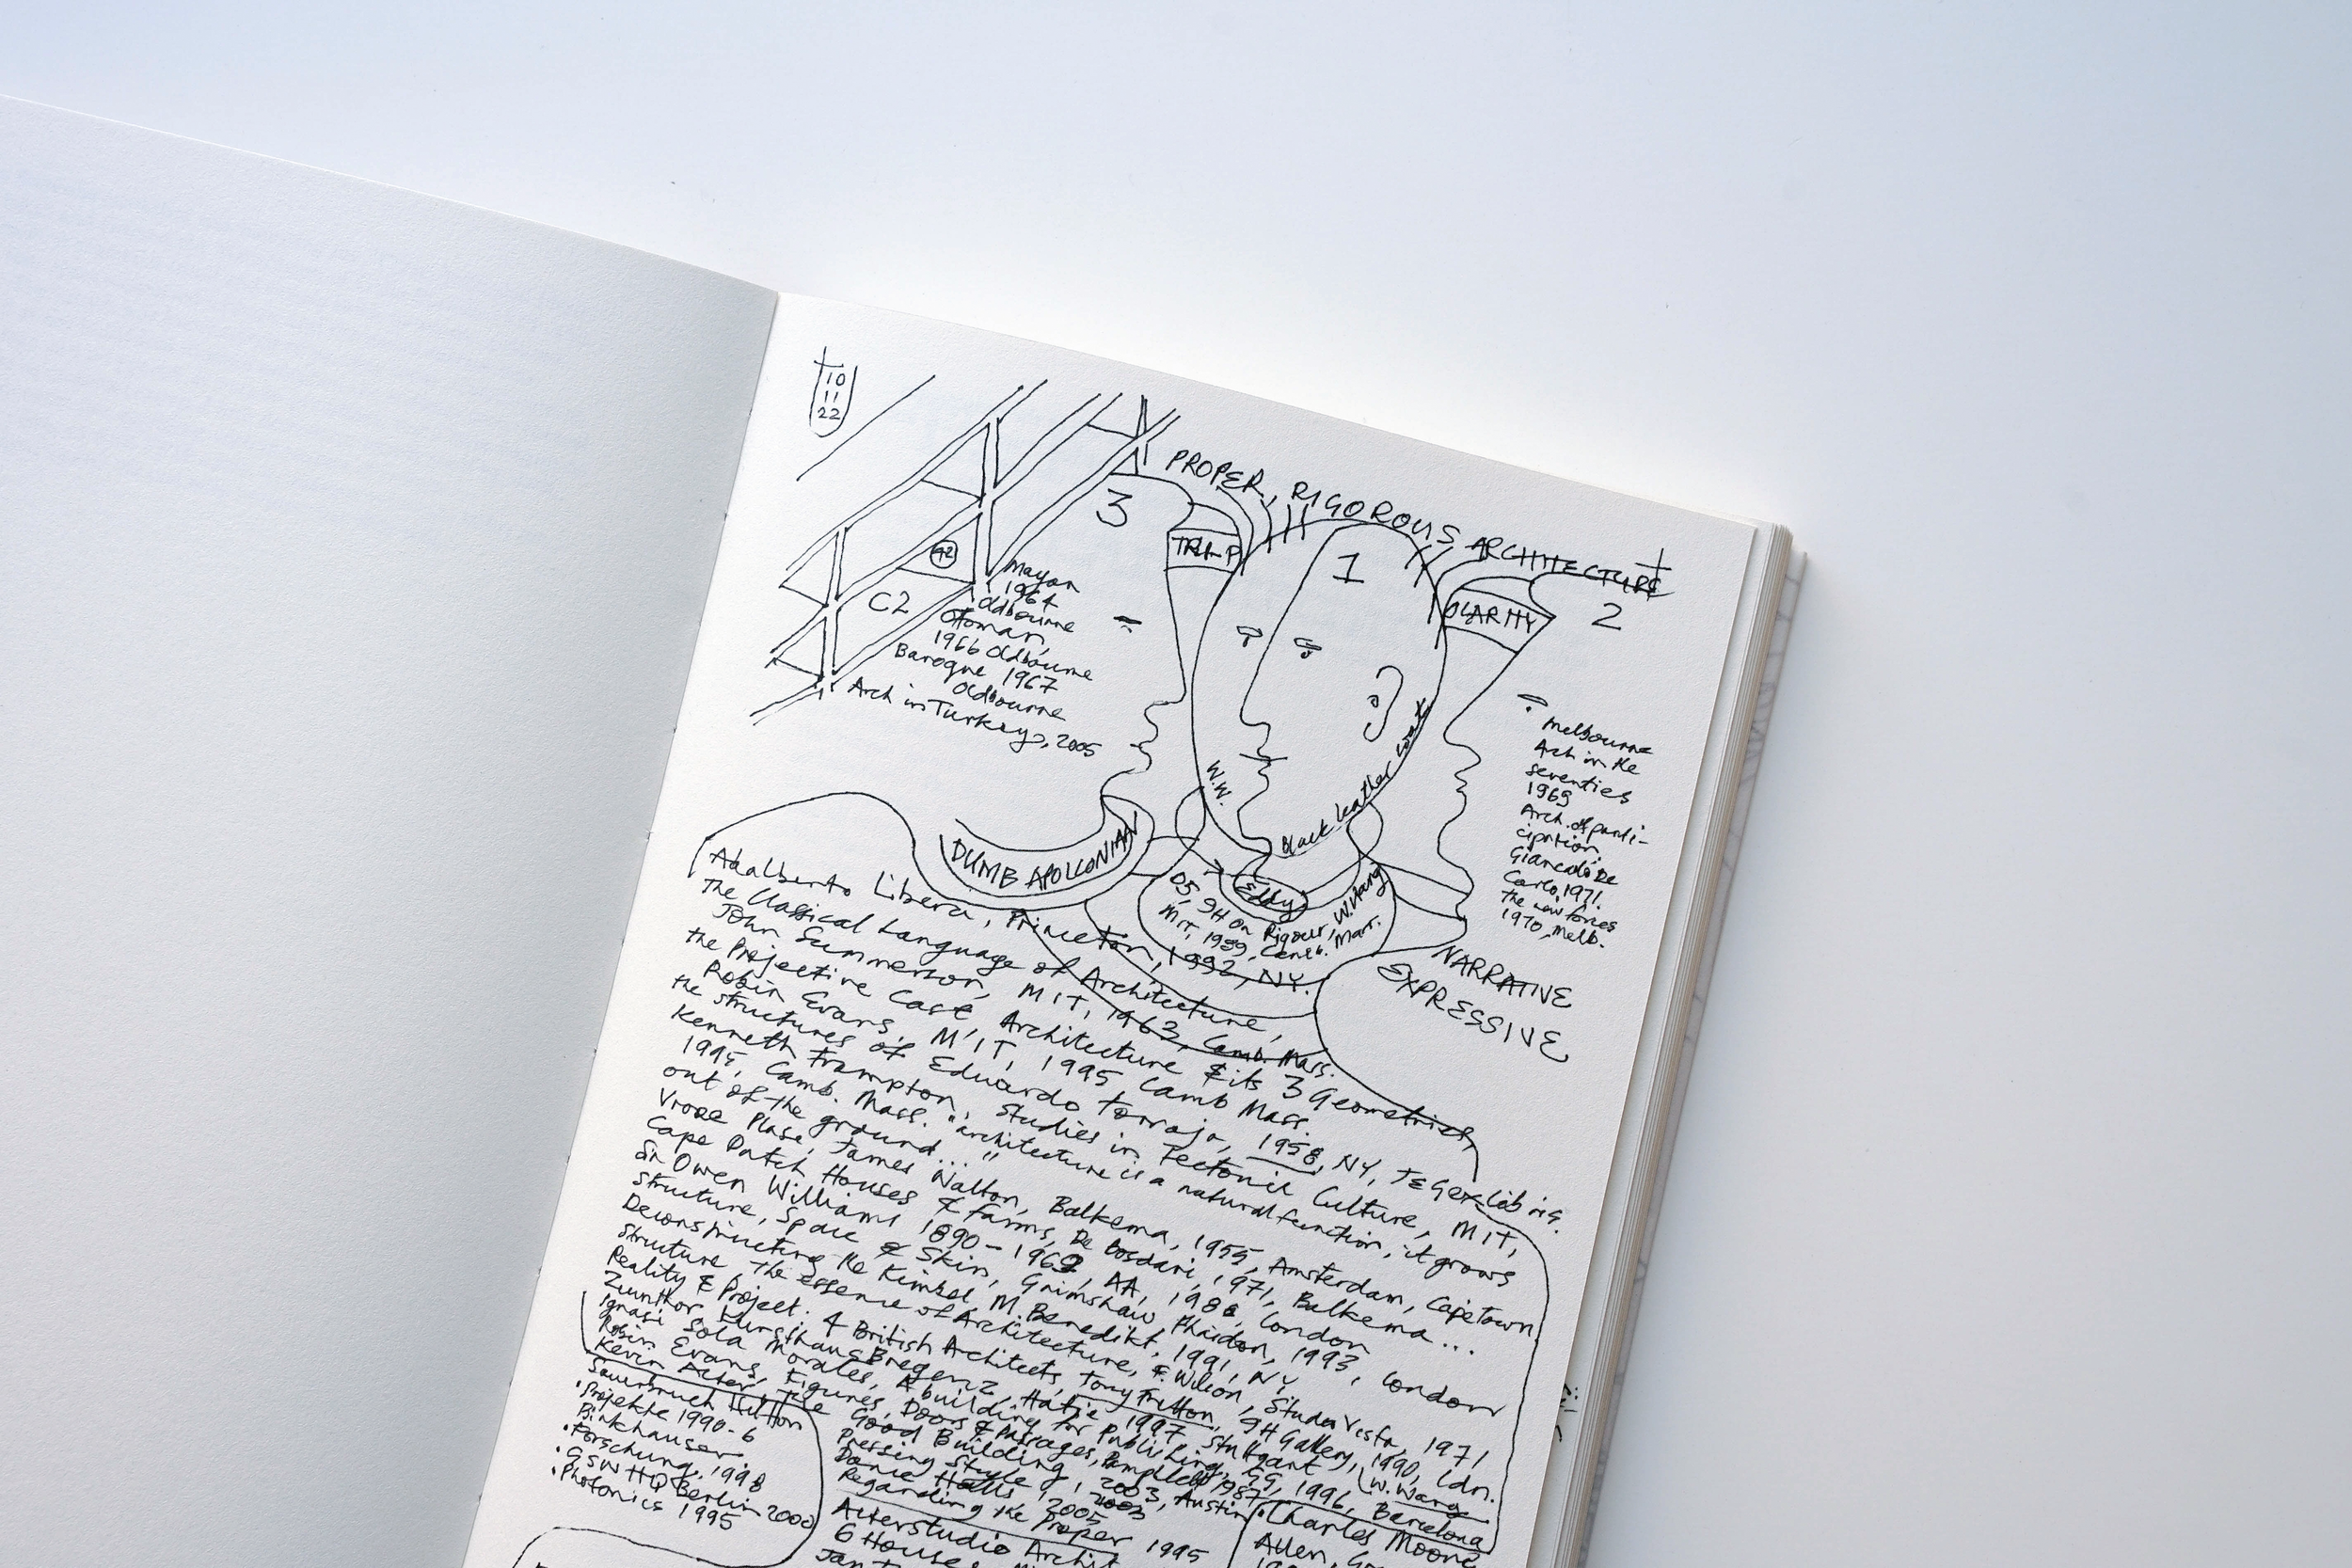 10
11
22
PROPER, RIGOROUS ARCHITECTURE
3
1
2
CLARITY
42
C2
Mayan
1964
Oldbourne
Ottoman,
1966 Oldbourne
Baroque 1967
Oldbourne
Arch in Turkey, 2005
W.W.
black leather coats
DUMB APOLLONIAN
Eddy
05, 9H On Rigour, W. Wang
MIT, 1989, Camb. Mass.
Melbourne
Arch in the
seventies
1969
Arch. of parti-
cipation
Giancarlo De
Carlo, 1971.
the new forces
1970, Melb.
NARRATIVE
EXPRESSIVE
Adalberto Libera, Princeton, 1992, NY.
The Classical Language of Architecture,
John Summerson, MIT, 1963, Camb. Mass.
the Projective Cast Architecture & its 3 Geometries,
Robin Evans, MIT, 1995 Camb Mass.
the structures of Eduardo Torroja, 1958, NY,
Kenneth Frampton, Studies in Tectonic Culture, MIT,
1995, Camb. Mass. "architecture is a natural function, it grows
out of the ground..."
Vroee Plase, James Walton, Balkema, 1955, Amsterdam, Cape Town
Cape Dutch Houses & farms, De Bosdari, 1971, Balkema...
Sir Owen Williams 1890-1969, AA, 1986, London
Structure, Space & Skin, Grimshaw, Phaidon, 1993, London
Deconstructing the Kimbel, M. Benedikt, 1991, NY
Structure the essence of Architecture, F. Wilson, Studio Vista, 1971
Reality & Project: 4 British Architects, Tony Fretton, 9H Gallery, 1990, Ldn.
Zumthor Kunsthaus Bregenz, Hatje 1997, Stuttgart (W. Wang
Ignasi Sola Morales, A building for Publishing, GG, 1996, Barcelona
Robin Evans, Figures, Doors & Passages,
Kevin Alter, The Good Building, 2003, Austin
Pressing Style, 2003
Dance Halls, 2005
Regarding the Proper 1995
Sauerbruch Hutton
• Projekte 1990-6
Birkhauser
• Forschung, 1998
• GSW HQ Berlin 2000
• Photonics 1995
Alterstudio Archit
6 Houses
• Charles Moore
Allen,